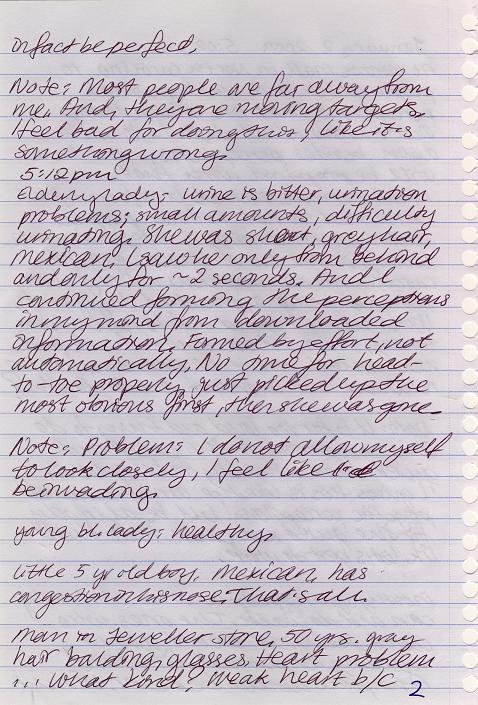 in fact be perfect,
Note: Most people are far away from
me. And, they are moving targets.
I feel bad for doing this, like it is
something wrong.
5:12 pm
Elderly lady: urine is bitter, urination
problems: small amounts, difficulty
urinating. She was short, grey hair,
Mexican, I saw her only from behind
and only for ~2 seconds. And I
continued forming the perceptions
in my mind from "downloaded"
information. Formed by effort, not
automatically. No time for head-
to-toe properly, just picked up the
most obvious first, then she was gone.
Note: Problem: I do not allow myself
to look closely, I feel like I'd
be invading.
young bl. lady: healthy.
little 5 yr old boy, Mexican, has
congestion in his nose. That is all.
Man in jeweller store, 50 yrs. gray
hair balding, glasses. Heart problem
... what kind? weak heart b/c
2